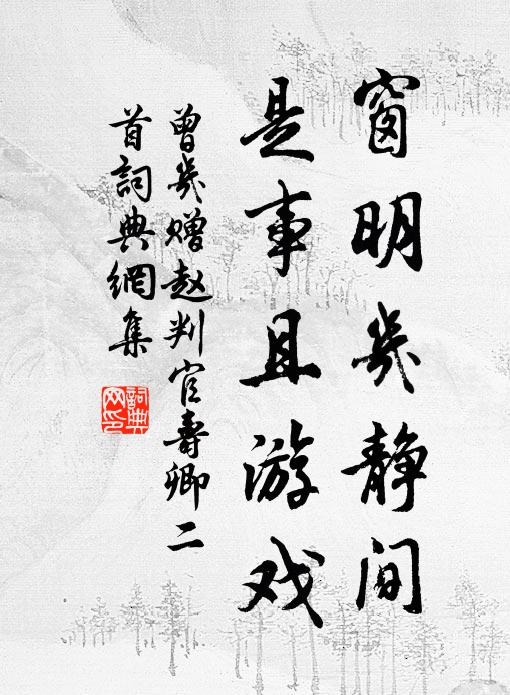 窗明幾静间
是事且游戏
曾幾赠赵判官壽卿二
首詞典網集
詞典网印